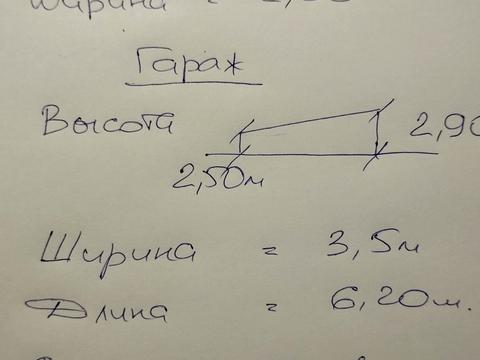 Ширина =
Гараж
Высота 2,90
2,50м
Ширина = 3,5м
Длина = 6,20м.